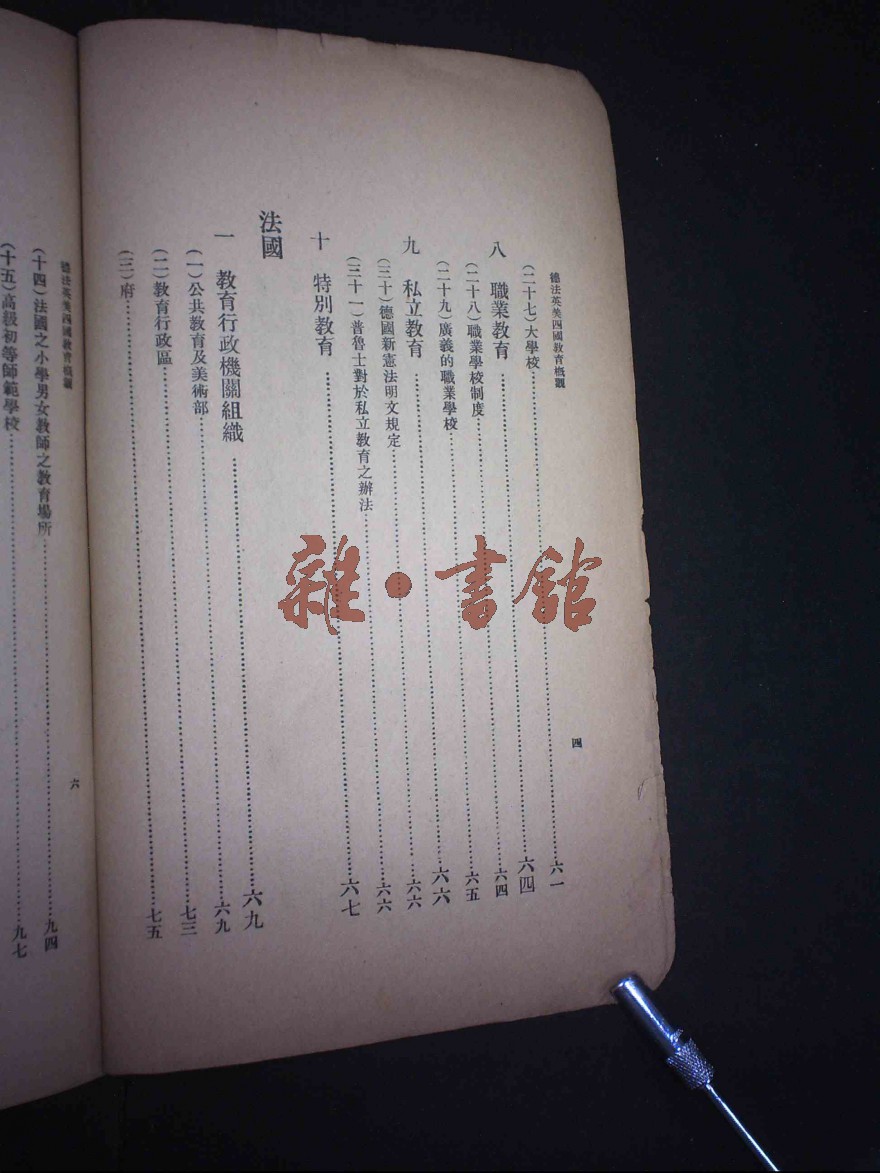 德法英美四國教育概觀 四
(二十七)大學校……六一
八 職業教育……六四
(二十八)職業學校制度……六四
(二十九)廣義的職業學校……六五
九 私立教育……六六
(三十)德國新憲法明文規定……六六
(三十一)普魯士對於私立教育之辦法……六六
十 特別教育……六七
法國
一 教育行政機關組織……六九
(一)公共教育及美術部……六九
(二)教育行政區……七三
(三)府……七五
德法英美四國教育概觀 六
(十四)法國之小學男女教師之教育場所……九四
(十五)高級初等師範學校……九七
雜·書館